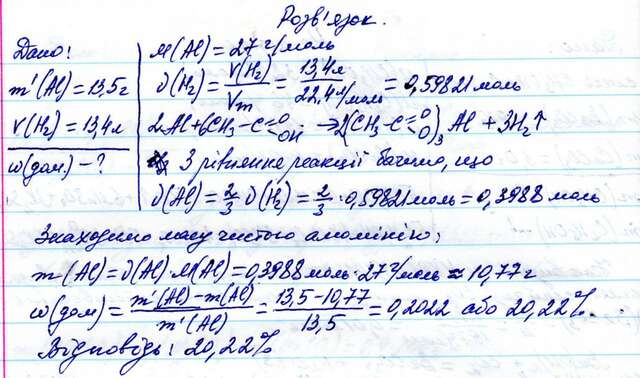 Розв'язок.
Дано:
m'(Al)=13,5г
V(H₂)=13,4л
ω(дом.)-?
M(Al)=27 г/моль
ν(H₂)=V(H₂)/Vm=13,4л/22,4л/моль=0,59821 моль
2Al+6CH₃-C(=O)-OH→2(CH₃-C(=O)-O)₃Al+3H₂↑
З рівняння реакції бачимо, що
ν(Al)=2/3 ν(H₂)=2/3·0,59821 моль=0,3988 моль
Знаходимо масу чистого алюмінію:
m(Al)=ν(Al)·M(Al)=0,3988 моль·27 г/моль≈10,77 г
ω(дом)=(m'(Al)-m(Al))/m'(Al)=(13,5-10,77)/13,5=0,2022 або 20,22%.
Відповідь: 20,22%